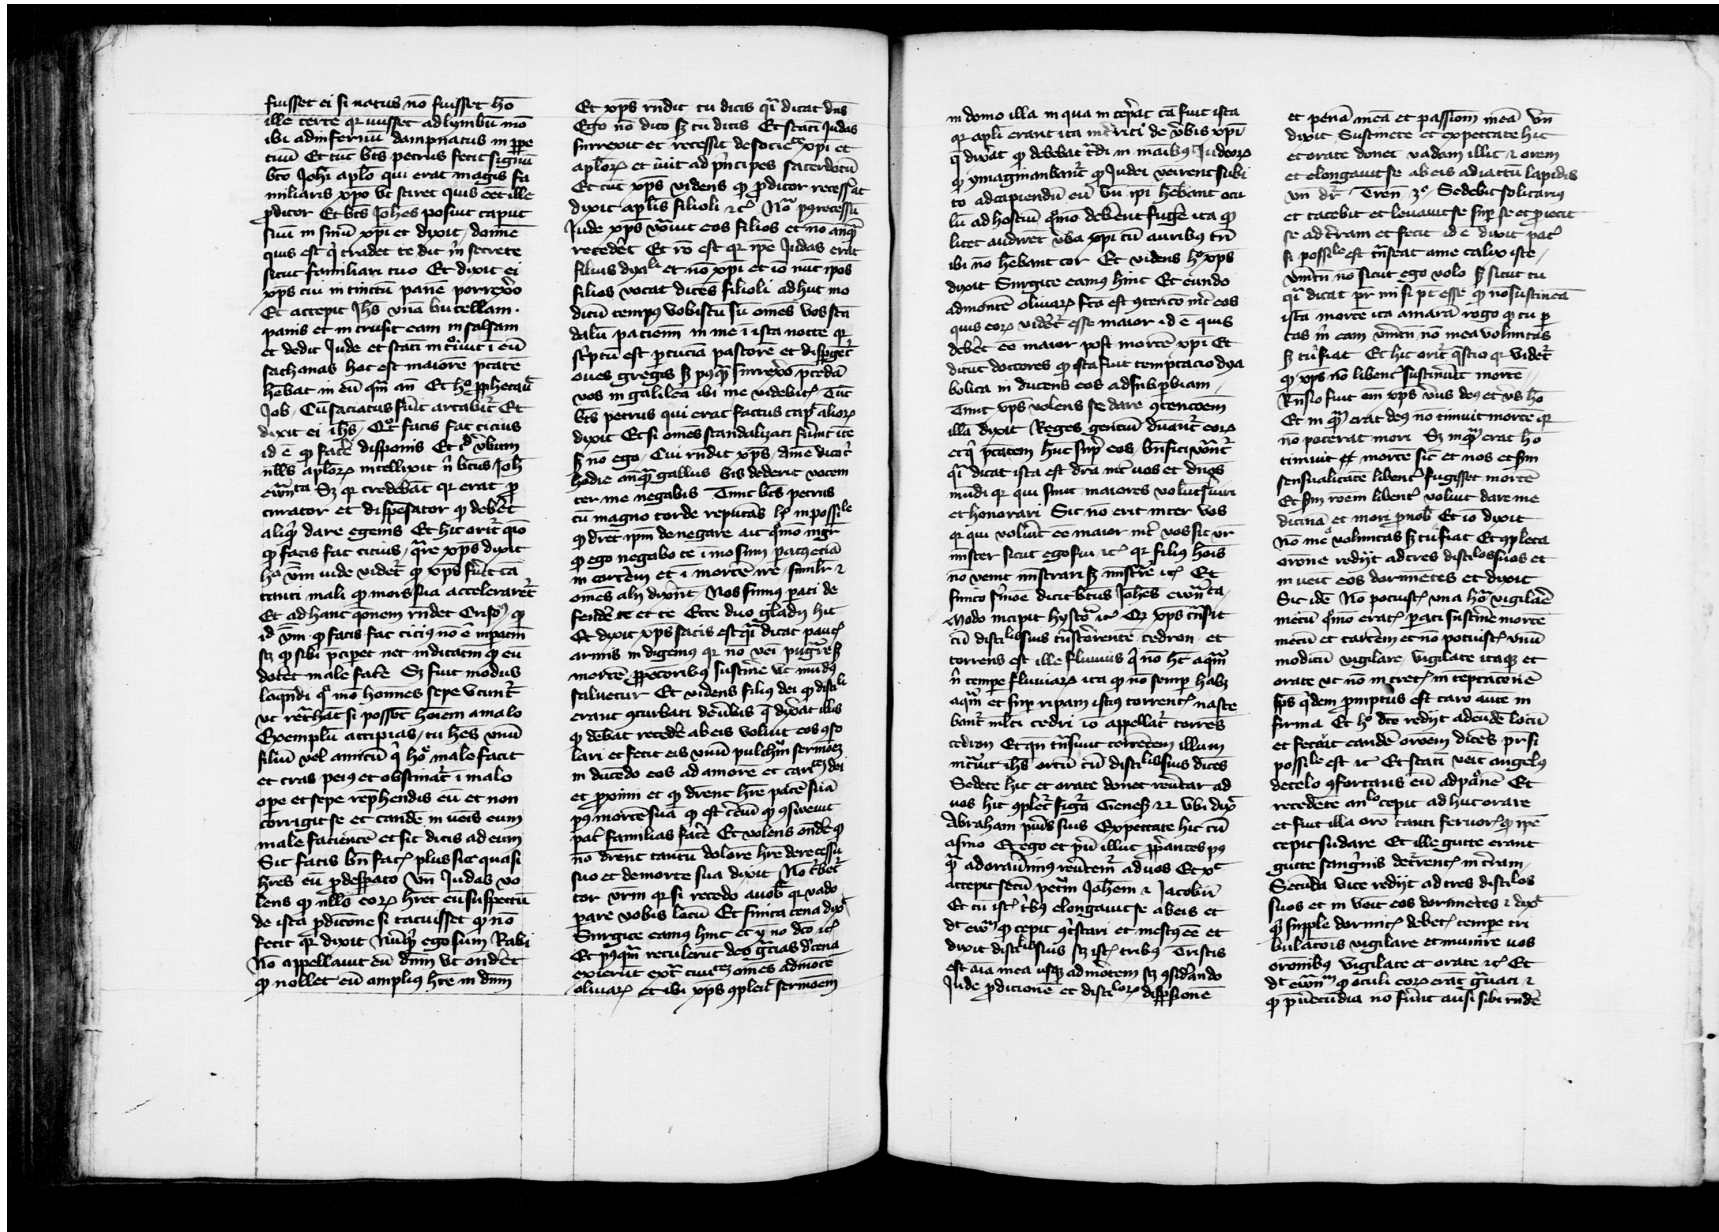 fuisset ei si natus nō fuisset hō
ille certe qr iuisset ad lymbū mō
ibi ad infernū dampnatus in ppe
tuū Et tūc bts petrus fecit signū
bto Johi aplo qui erat magis fa
miliaris xpo vt sciret quis eēt ille
pditor Et bts Johes posuit caput
suū in sinū xpi et dixit domie
quis est q tradet te dic m secrete
sicut familiari tuo Et dyxit ei
xps cui intinctū panē porrexo
Et accepit Jhs vnā bucellam
panis et intrusit eam in salsam
et dedit Jude et stati intiuit i eū
sathanas hoc est maiorē ptatē
hebat in eū qm an Et ho pphetauit
Job Cū saciatus fuit artabit Et
dixit ei ihs Qd facis fac cicius
id ē qd face disponis Et id vbum
nlls aplor intellixit n btus Joh
ewāta Sz qr credebāt qr erat p
curator et dispesator qd debet
aliqd dare egenis Et hic orit qio
qd facis fac cicius qre xps dixit
ho vm iude videt qd xps fuit cā
tanti mali qd mors sua accelararet
Et ad hanc qonem rndet Criso qd
id vm qd facis fac cicius nō ē impatm
sz qd sibi pcipet nec indicatm qd eū
docet male face Sz fuit modus
loqndi qo mō homines sepe vtunt
vt retrhāt si possūt hoiem a malo
Exemplū accipias tu hes vnū
filiū vel amicū q ho malo facit
et cras peius et obstinat i malo
ope et sepe rephendis eū et non
corrigit se et candē inueis eum
male facientē et sic dicis ad eum
Sic facis bn fac plus sic quasi
hres eū p desperato Vn Judas vo
lens qd nlls eor hret eū suspectū
de ista pdicione si tacuisset qd nō
fecit qr dixit Nūqd ego sum Rabi
Nō appellauit eū dnm vt ondet
qd nollet eū amplius hre in dnm
Et xps rndit tu dicis qi dicat dns
Ego nō dico sz tu dicis Et stati Judas
surrexit et recessit de societate xpi et
aplor et iuit ad pncipes sacerdotū
Et tūc xps videns qd pditor recessat
dixit aplis filioli etc Nō p recessū
Jude xps vocauit eos filios et nō anq
recedet Et rō est qr ipe Judas erat
filius dyali et nō xpi et iō nūc ipos
filios vocat dicēs filioli adhuc mo
dicū tempus vobiscū su omes vos scā
dalū paciemi in me i ista nocte qr
scptū est p cuciā pastorē et dispget
oues gregis sz p qm surrexo pcedā
vos in galilea ibi me videbitis Tūc
bts petrus qui erat factus capt alior
dixit Et si omes scandalizati fuint ī te
sz nō ego Cui rndit xps amē dico t
hodie anqm gallus bis dederit vocem
ter me negabis Tunc bts petrus
cū magno corde reputās ho inpossile
qd dret ipm denegare ait qmō ingr
qd ego negabo te imo sum pat etiā
in carcēm et i mortē ire similr et
omes alij dixnt Nos sumus pati de
fendē te et te Ecce duo gladij hic
Et dixit xps satis est qi dicat paucis
armis indigemus qr nō vei pugre sz
mortē p peccoribus sustinē vt mūdus
saluetur Et videns filius dei qd discli
erant cturbati de vbis q dixat illis
qd debat recedē ab eis voluit eos cso
lari et fecit eis vnū pulchm sermoēz
inducēdo eos ad amorē et caritatem dei
et proximi et qd drent hre pacē suā
p mortē suā qd est ctm qd csweuit
pat familias face Et volens ondē qd
nō drent tantū dolorē hre de recessu
suo et de morte sua dixit No tbet
cor vrm qr si recedo a uob qr vado
parē vobis locū Et finita cena dix
Surgite eamus hinc et y nō dō etc
Et pqm retulerūt deo grcias d cena
exierūt ext ciuitatez omes ad motē
oliuar et ibi xps cpleit sermoēm
in domo illa in qua incepat cā fuit ista
qr apli erant ita interriti de vbis xpi
q dixat qd debebat tdi in manibus Judeor
qd ymaginanbant qd Judei veirent subi
to ad capiendū eū vn ipi hebant ocu
lū ad hostiū qmō deberēt fugē ita qd
licet audirēt vba xpi cū auribus tn
ibi nō hebant cor Et videns ho xps
dixit Surgite eamus hinc Et eundo
ad montē oliuar fcā est ctencō int eos
quis eor videt esse maior id ē quis
debet eē maior post mortē xpi Et
dicūt doctores qd ista fuit temptacio dya
bolica inducens eos ad supbiam
Tunc xps volens sedare ctencoem
illā dixit Reges genciū dnant eor
et q ptatem hnt sup eos bnfici vocant
qi dicat ista est dra int uos et dnos
mūdi qr qui sunt maiores volūt suiri
et honorari Sic nō erit inter vos
qr qui voluit eē maior int vos sit vr
mister sicut ego fui etc qr filius hois
nō venit mistrari sz mistrare etc Et
finito smōe dicit btus Johes ewāta
Modo incipit hystoria etc Qd xps tnsiit
cū disclis suis tns torrentē cedron et
torrens est ille fluuius q nō ht aqm
n tempe pluuiar ita qd nō semp habz
aqm et sup ripam istius torrentis nasce
bant mlti cedri iō appellat torrēs
cedron Et qn tnsiuit torrētem illum
intuit ihs ortū cū disclis suis dicēs
Sedete hic et orate donec reutar ad
uos hic cplet figra Genes 22 vbi dix
Abraham puis suis Expectate hic cū
asino Et ego et puer illuc pperantes p
qm adorauimus reutemr ad uos Et xc
accepit secū petm Johem et Jacobū
Et cū istis tbus elongauit se ab eis et
dt ewā qd cepit tstari et mestus eē et
dixit disclis suis sz istis tribus Tristis
est aīa mea usqz ad mortem sz csidando
Jude pdicionē et discilor dispsionē
et penā meā et passionm meā Vn
dixit Sustinete et expectate hic
et orate donec vadam illuc et orem
et elongauit se ab eis ad iactū lapidis
vn dr Tren 3o Sedebit solitarius
et tacebit et leuauit se sup se et piecit
se ad terram et fecit id ē dixit pat
si possile est tnseat a me calix iste
vmtn nō sicut ego volo sz sicut tu
qi dicat pr mi si pt esse qd nō sustineā
istā mortē ita amarā rogo qd tu p
cas m eam vmtn nō mea volūtas
sz tu fiat Et hic orit qstio qr videt
qd xps nō libent sustinuit mortē
Rnsio fuit em xps verus deus et vus hō
Et in qm erat deus nō timuit mortē qr
nō poterat mori Sz in qm erat hō
timuit mortē sic et nos et scm
sensualitatē libent fugisset mortē
Et scm roem libent voluit dare me
dicinā et mori p nob Et iō dixit
Nō me voluntas sz tu fiat Et cpleta
orōne redijt ad tres disclos suos et
inueit eos dormietes et dixit
Sic idē No potuistis vna hora vigilaē
mecū qmō eratis parati sustinē mortē
mecū et carcēm et nō potuistis vnū
modicū vigilare vigilate itaqz et
orate vt nō intretis in teptacionē
spūs qdem pmptus est caro aute in
firma Et ho dto redijt ad eūdē locū
et feccit eandē oroēm dicēs pr si
possile est etc Et stati veit angelus
de celo cfortans eū ad penā Et
recedēte anlo cepit adhuc orare
et fuit illa orō tanti feruoris qd ipē
cepit sudare Et ille gutte erant
gutte sangnis decrentis in tram
Secūda vice redijt ad tres disclos
suos et inveit eos dormietes et dix
qd supple dormitis debetis tempe tri
bulacōis vigilare et munire uos
orōnibus vigilate et orate etc Et
dt ewām qd oculi eor erāt grauati et
qd p verecūdia nō fuerūt ausi sibi rndē